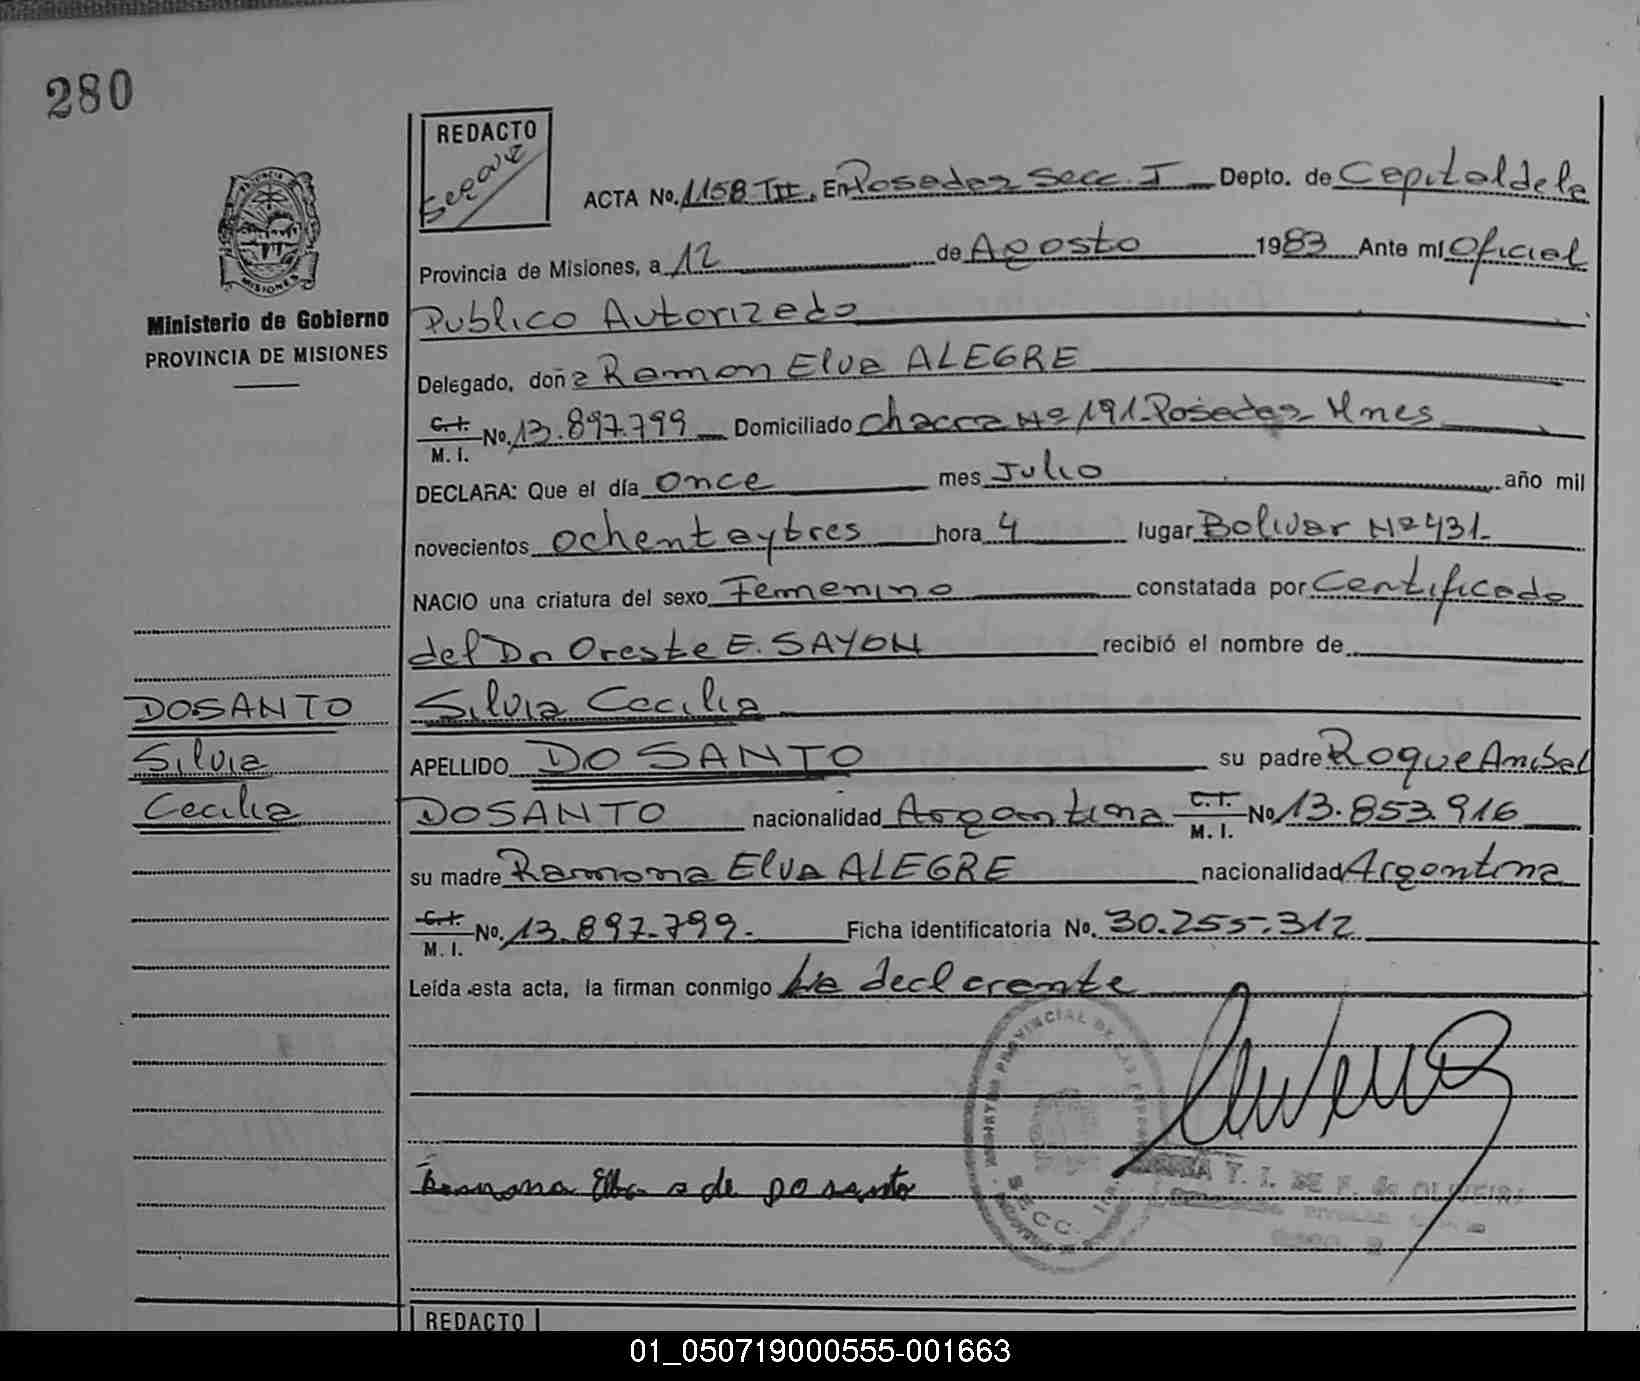 280
REDACTO
ACTA No. 1158 TII. En Posadas Secc. I Depto. de Capital de la
Provincia de Misiones, a 12 de Agosto 1983 Ante mi Oficial
Ministerio de Gobierno
PROVINCIA DE MISIONES
Publico Autorizado
Delegado, doña Ramon Elva ALEGRE
C.I. M.I. No. 13.897.799 Domiciliado Chacra Nº 191-Posadas Mnes
DECLARA: Que el día once mes Julio año mil
novecientos ochentaytres hora 4 lugar Bolivar Nº 431.
NACIO una criatura del sexo Femenino constatada por Certificado
del Dr Oreste E. SAYON recibió el nombre de
DOSANTO
Silvia Cecilia
Silvia
APELLIDO DOSANTO su padre Roque Anibal
Cecilia
DOSANTO nacionalidad Argentina C.I. M.I. No 13.853.916
su madre Ramona Elva ALEGRE nacionalidad Argentina
C.I. M.I. No. 13.897.799. Ficha identificatoria No. 30.255.312
Leída esta acta, la firman conmigo la declarante
Ramona Elba a de Do santo
SECC.
Y. I. DE F. de OLIVEIRA
REDACTO
01_050719000555-001663